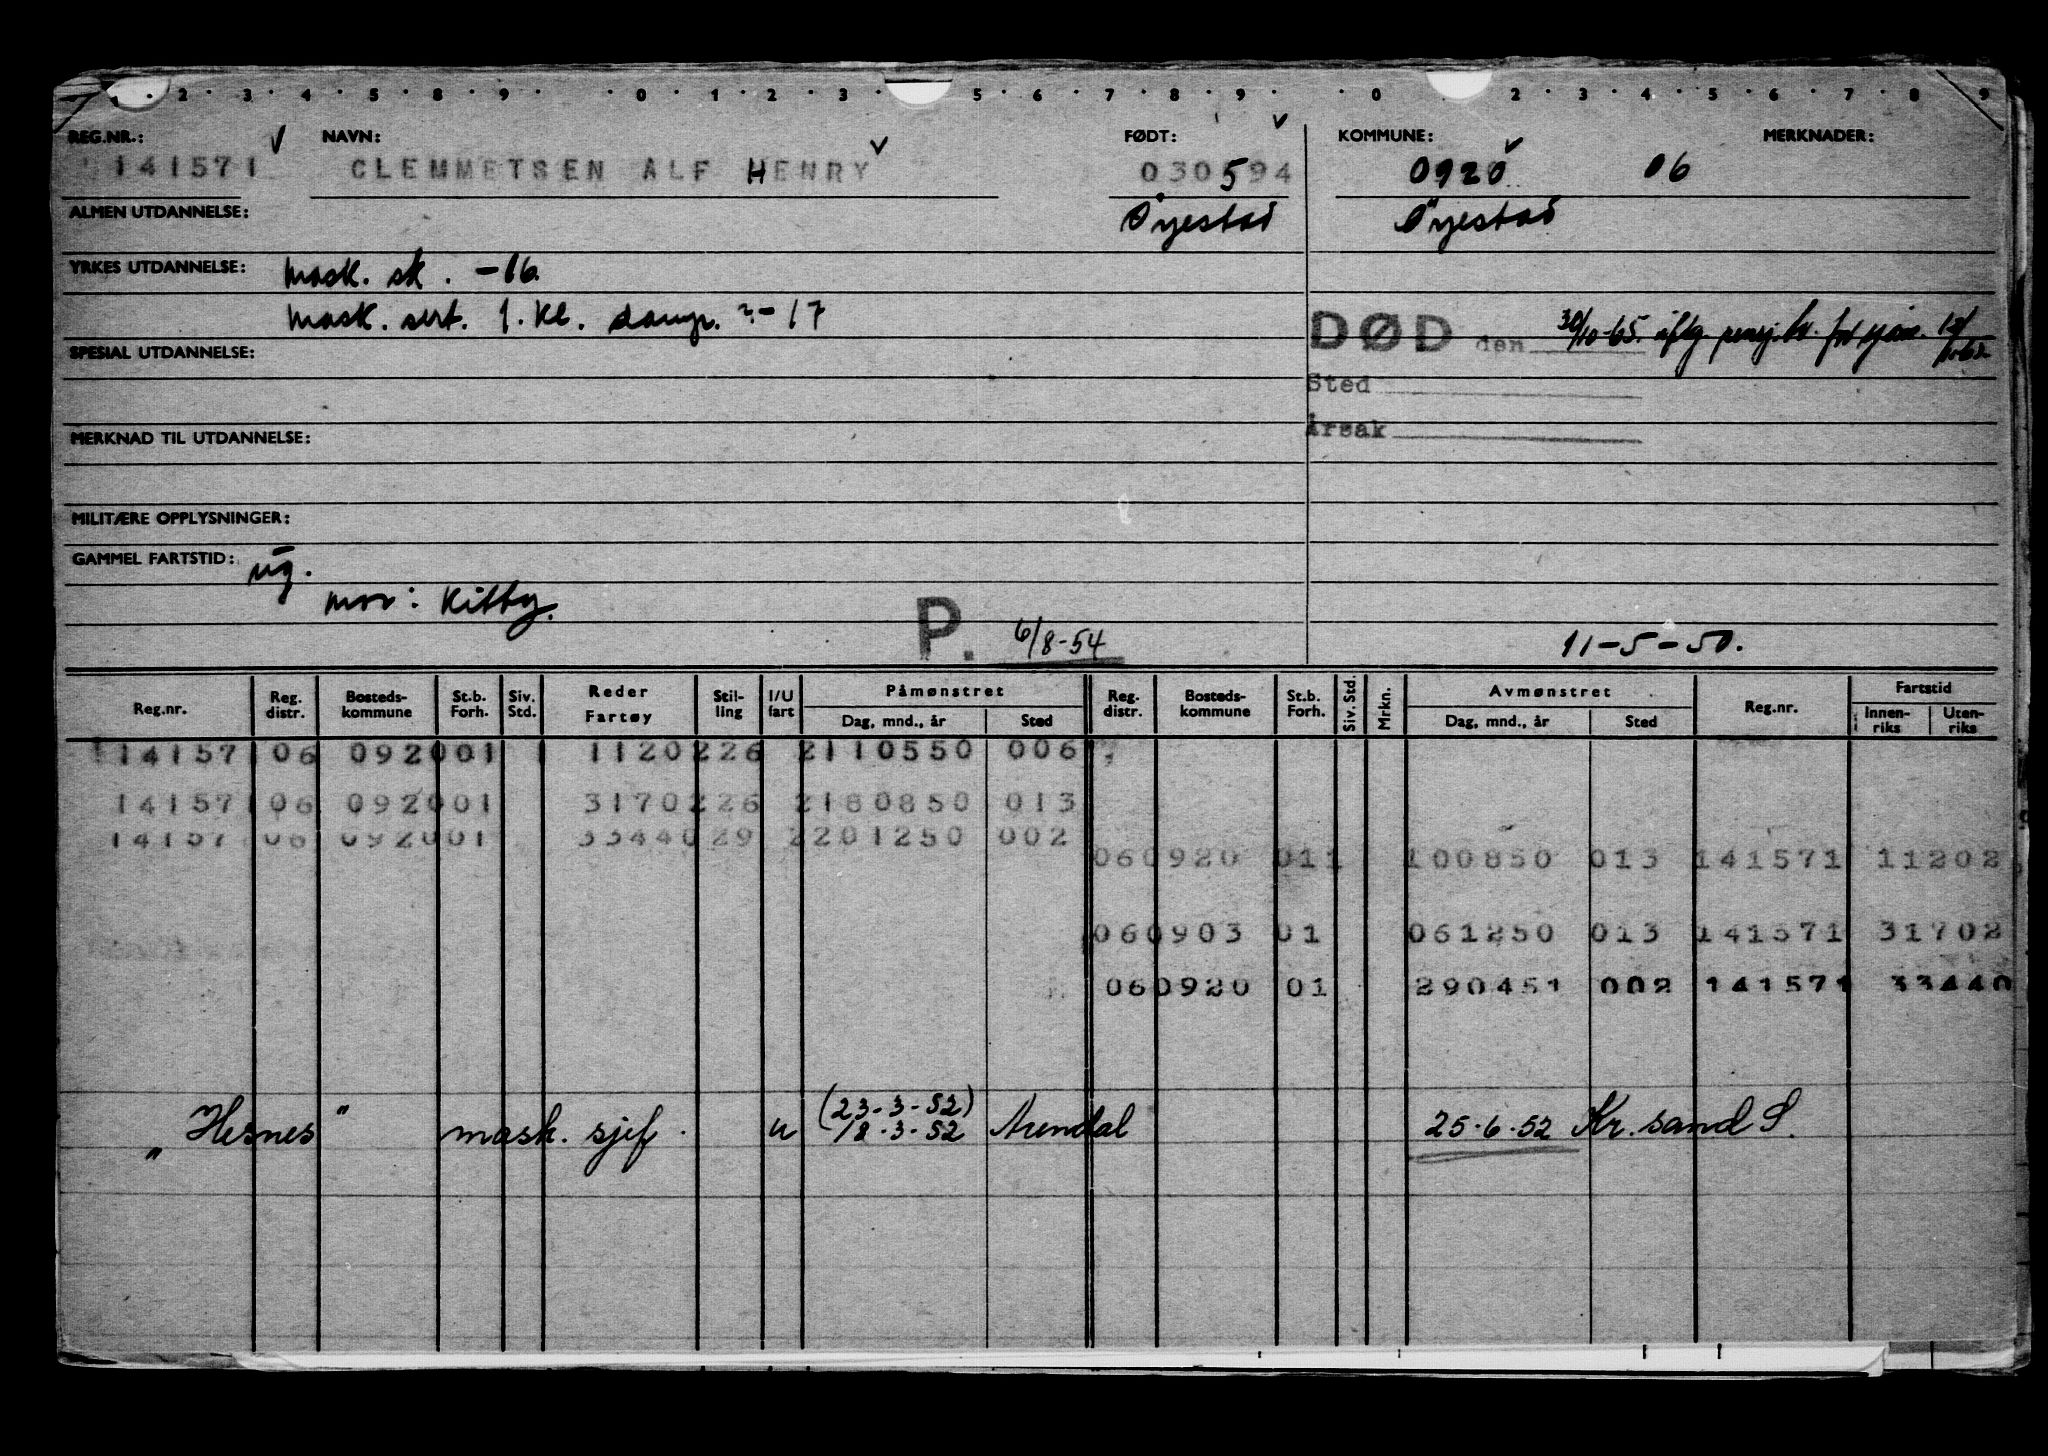 2 3 4 5 8 9 0 1 2 3 5 6 7 8 9 0 2 3 4 5 6 7 8 9
REG.NR.: NAVN: FØDT: KOMMUNE: MERKNADER:
141571 CLEMMETSEN ALF HENRY 030594 0920 06
ALMEN UTDANNELSE: Øyestad Øyestad
YRKES UTDANNELSE: mask. sk. -16.
mask. sert. 1. kl. damp. ?-17
DØD den 30/10-65. iflg. pensj.
SPESIAL UTDANNELSE:
Sted
Årsak
MERKNAD TIL UTDANNELSE:
MILITÆRE OPPLYSNINGER:
GAMMEL FARTSTID: ug.
mor: Kitty.
P. 6/8-54 11-5-50.
Reg.nr. Reg. distr. Bosteds-kommune St.b. Forh. Siv. Std. Reder Fartøy Stil-ling I/U fart Påmønstret Dag, mnd., år Sted Reg. distr. Bosteds-kommune St.b. Forh. Siv. Std. Mrkn. Avmønstret Dag, mnd., år Sted Reg.nr. Fartstid Innen-riks Uten-riks
14157 06 092001 1 1120226 2110550 006
14157 06 092001 3170226 2180850 013
14157 06 092001 3344029 2201250 002
060920 011 100850 013 141571 11202
060903 01 061250 013 141571 31702
060920 01 290451 002 141571 33440
(23-3-52)
„Hesnes" mask. sjef. u 18-3-52 Arendal 25-6-52 Kr.sand S.